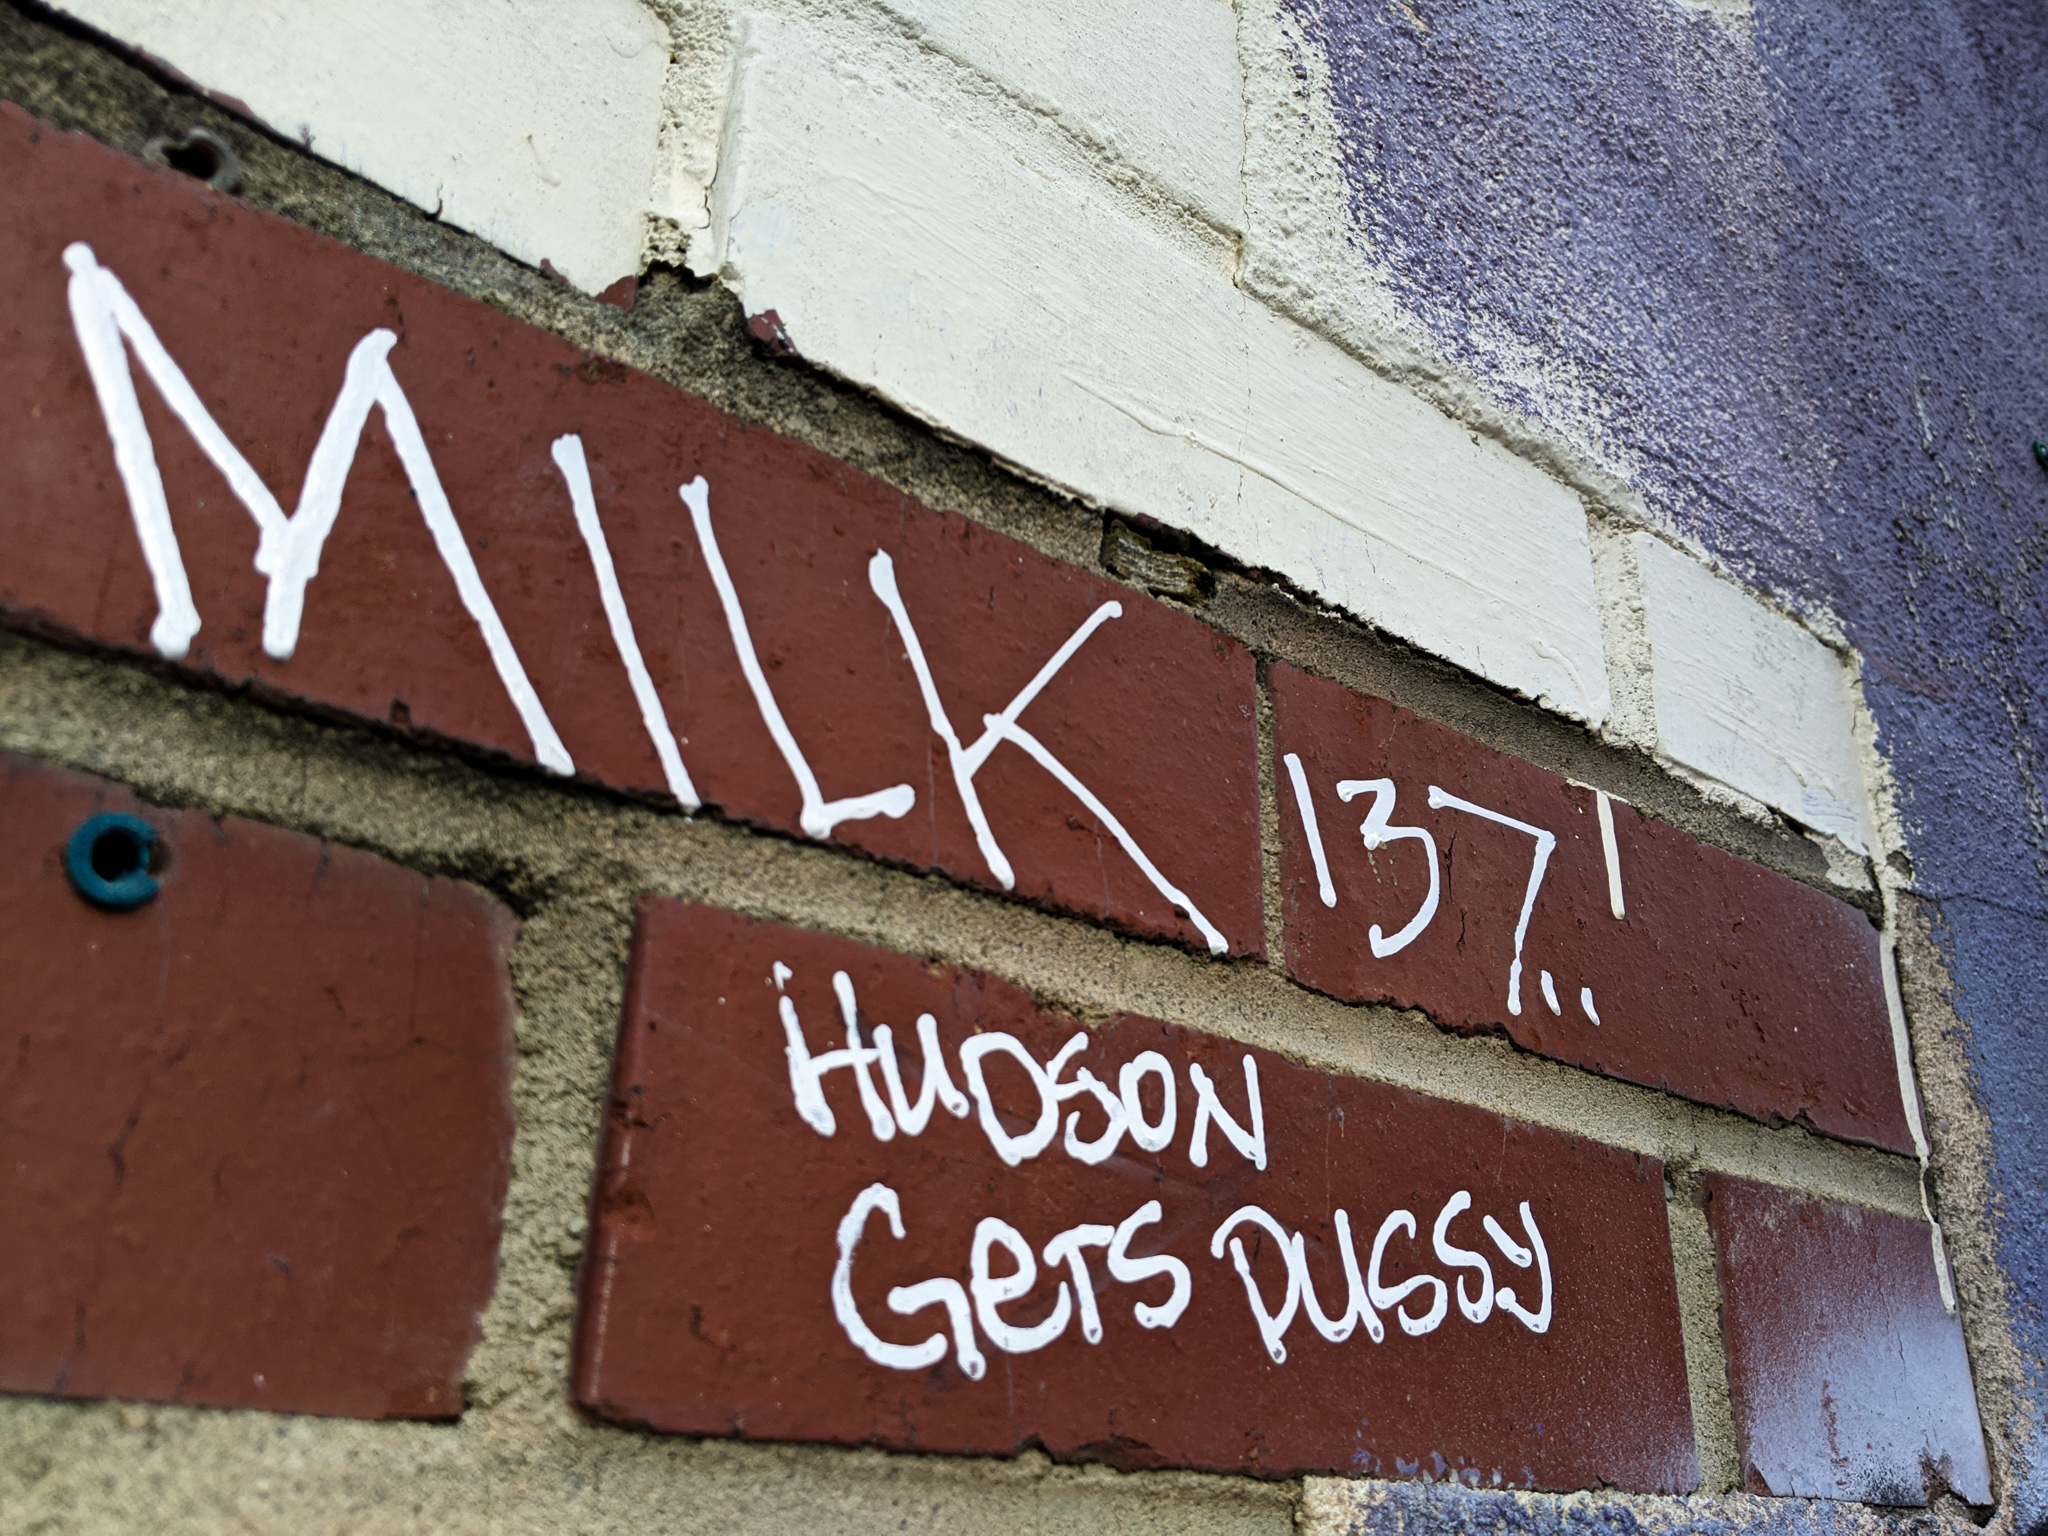 MILK 137"
HUDSON
GETS PUSSY